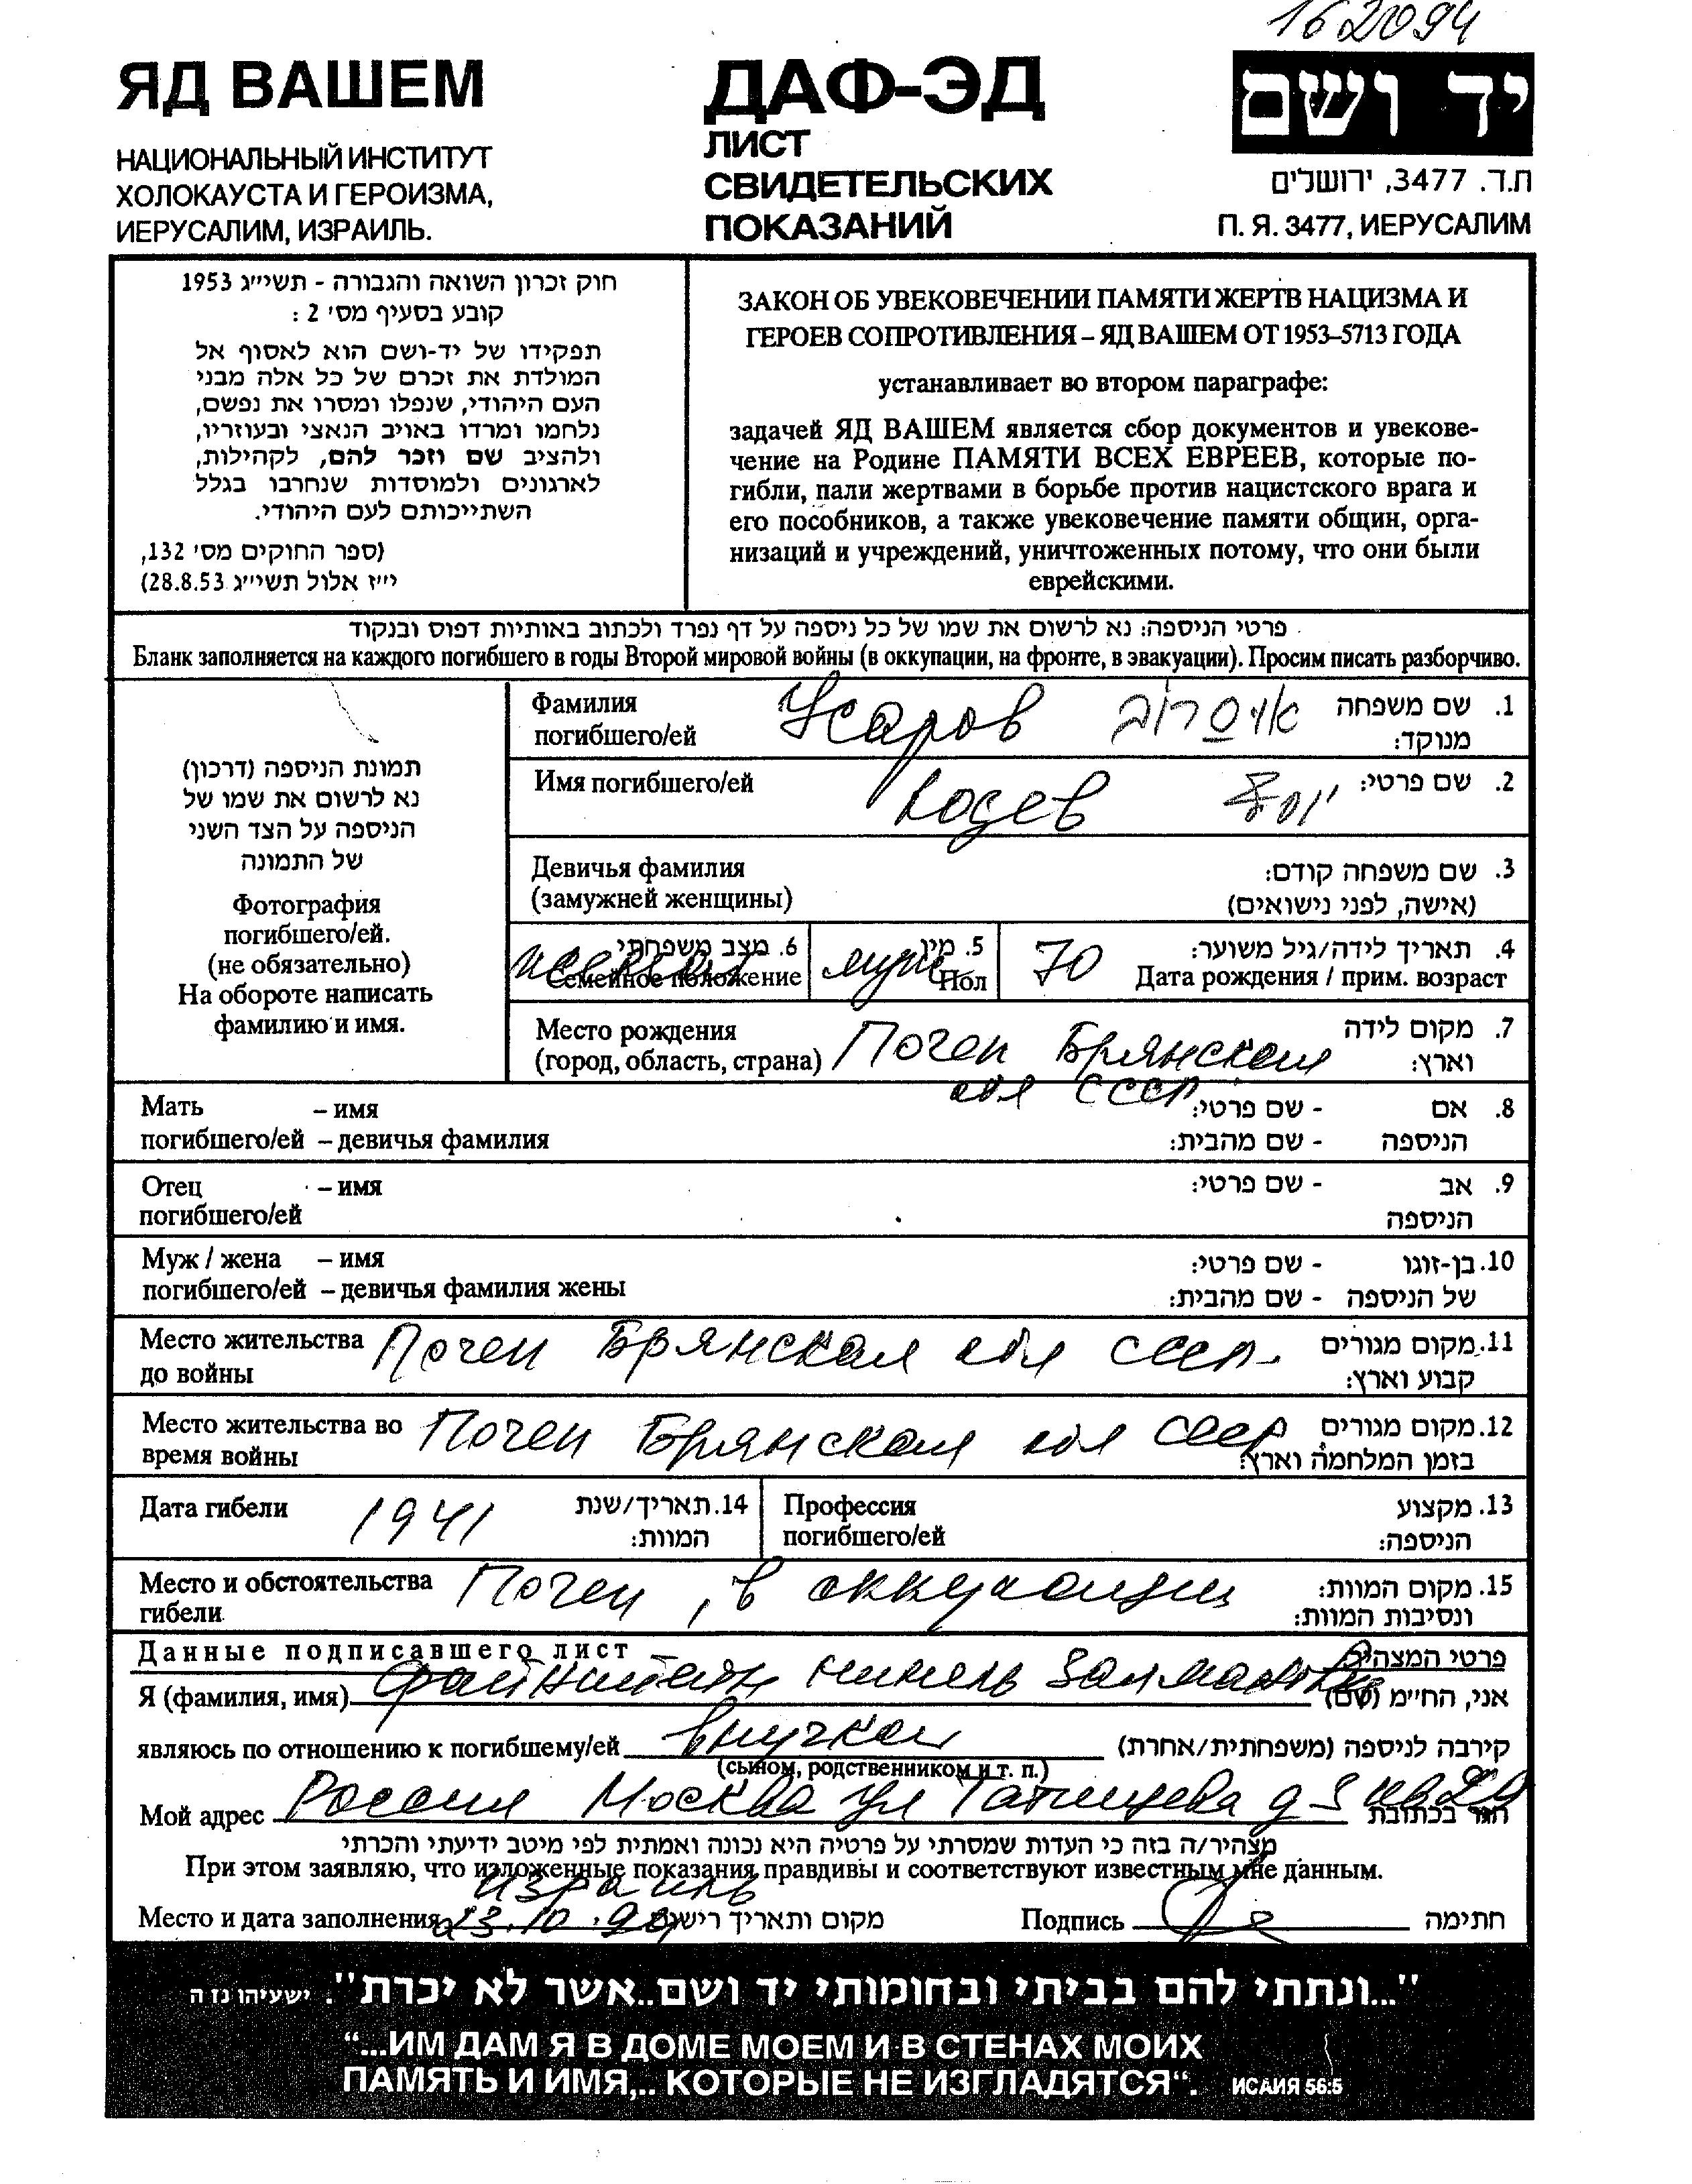 162094
ЯД ВАШЕМ
НАЦИОНАЛЬНЫЙ ИНСТИТУТ
ХОЛОКАУСТА И ГЕРОИЗМА,
ИЕРУСАЛИМ, ИЗРАИЛЬ.
ДАФ-ЭД
ЛИСТ
СВИДЕТЕЛЬСКИХ
ПОКАЗАНИЙ
יד ושם
ת.ד. 3477, ירושלים
П. Я. 3477, ИЕРУСАЛИМ
חוק זכרון השואה והגבורה - תשי״ג 1953
קובע בסעיף מס׳ 2 :
תפקידו של יד-ושם הוא לאסוף אל
המולדת את זכרם של כל אלה מבני
העם היהודי, שנפלו ומסרו את נפשם,
נלחמו ומרדו באויב הנאצי ובעוזריו,
ולהציב שם וזכר להם, לקהילות,
לארגונים ולמוסדות שנחרבו בגלל
השתייכותם לעם היהודי.
(ספר החוקים מס׳ 132,
י״ז אלול תשי״ג 28.8.53)
ЗАКОН ОБ УВЕКОВЕЧЕНИИ ПАМЯТИ ЖЕРТВ НАЦИЗМА И
ГЕРОЕВ СОПРОТИВЛЕНИЯ – ЯД ВАШЕМ ОТ 1953–5713 ГОДА
устанавливает во втором параграфе:
задачей ЯД ВАШЕМ является сбор документов и увекове-
чение на Родине ПАМЯТИ ВСЕХ ЕВРЕЕВ, которые по-
гибли, пали жертвами в борьбе против нацистского врага и
его пособников, а также увековечение памяти общин, орга-
низаций и учреждений, уничтоженных потому, что они были
еврейскими.
פרטי הניספה: נא לרשום את שמו של כל ניספה על דף נפרד ולכתוב באותיות דפוס ובנקוד
Бланк заполняется на каждого погибшего в годы Второй мировой войны (в оккупации, на фронте, в эвакуации). Просим писать разборчиво.
תמונת הניספה (דרכון)
נא לרשום את שמו של
הניספה על הצד השני
של התמונה
Фотография
погибшего/ей.
(не обязательно)
На обороте написать
фамилию и имя.
Фамилия
погибшего/ей
Усаров אוסרוב
1. שם משפחה
מנוקד:
Имя погибшего/ей
2. שם פרטי:
Девичья фамилия
(замужней женщины)
3. שם משפחה קודם:
(אישה, לפני נישואים)
6. מצב משפחתי
Семейное положение
5. מין
муж Пол
70
4. תאריך לידה/גיל משוער:
Дата рождения / прим. возраст
Место рождения
(город, область, страна)
Почеп Брянская
обл СССР
7. מקום לידה
וארץ:
Мать – имя
погибшего/ей – девичья фамилия
8. אם - שם פרטי:
הניספה - שם מהבית:
Отец – имя
погибшего/ей
9. אב - שם פרטי:
הניספה
Муж / жена – имя
погибшего/ей – девичья фамилия жены
10. בן-זוגו - שם פרטי:
של הניספה - שם מהבית:
Место жительства
до войны
Почеп Брянская обл СССР
11. מקום מגורים
קבוע וארץ:
Место жительства во
время войны
Почеп Брянская обл СССР
12. מקום מגורים
בזמן המלחמה וארץ:
Дата гибели
1941
14. תאריך/שנת
המוות:
Профессия
погибшего/ей
13. מקצוע
הניספה:
Место и обстоятельства
гибели
Почеп, в оккупации
15. מקום המוות:
ונסיבות המוות:
Данные подписавшего лист
פרטי המצהיר
Я (фамилия, имя) Файнштейн Нинель Залмановна אני, הח״מ (שם)
являюсь по отношению к погибшему/ей внучкой קירבה לניספה (משפחתית/אחרת)
(сыном, родственником и т. п.)
Мой адрес Россия Москва ул Татищева д 5 кв 29 הגר בכתובת
מצהיר/ה בזה כי העדות שמסרתי על פרטיה היא נכונה ואמתית לפי מיטב ידיעתי והכרתי
При этом заявляю, что изложенные показания правдивы и соответствуют известным мне данным.
Израиль
Место и дата заполнения 23.10 מקום ותאריך רישום Подпись חתימה
"...ונתתי להם בביתי ובחומותי יד ושם..אשר לא יכרת". ישעיהו נו ה
“...ИМ ДАМ Я В ДОМЕ МОЕМ И В СТЕНАХ МОИХ
ПАМЯТЬ И ИМЯ,.. КОТОРЫЕ НЕ ИЗГЛАДЯТСЯ“. ИСАИЯ 56:5